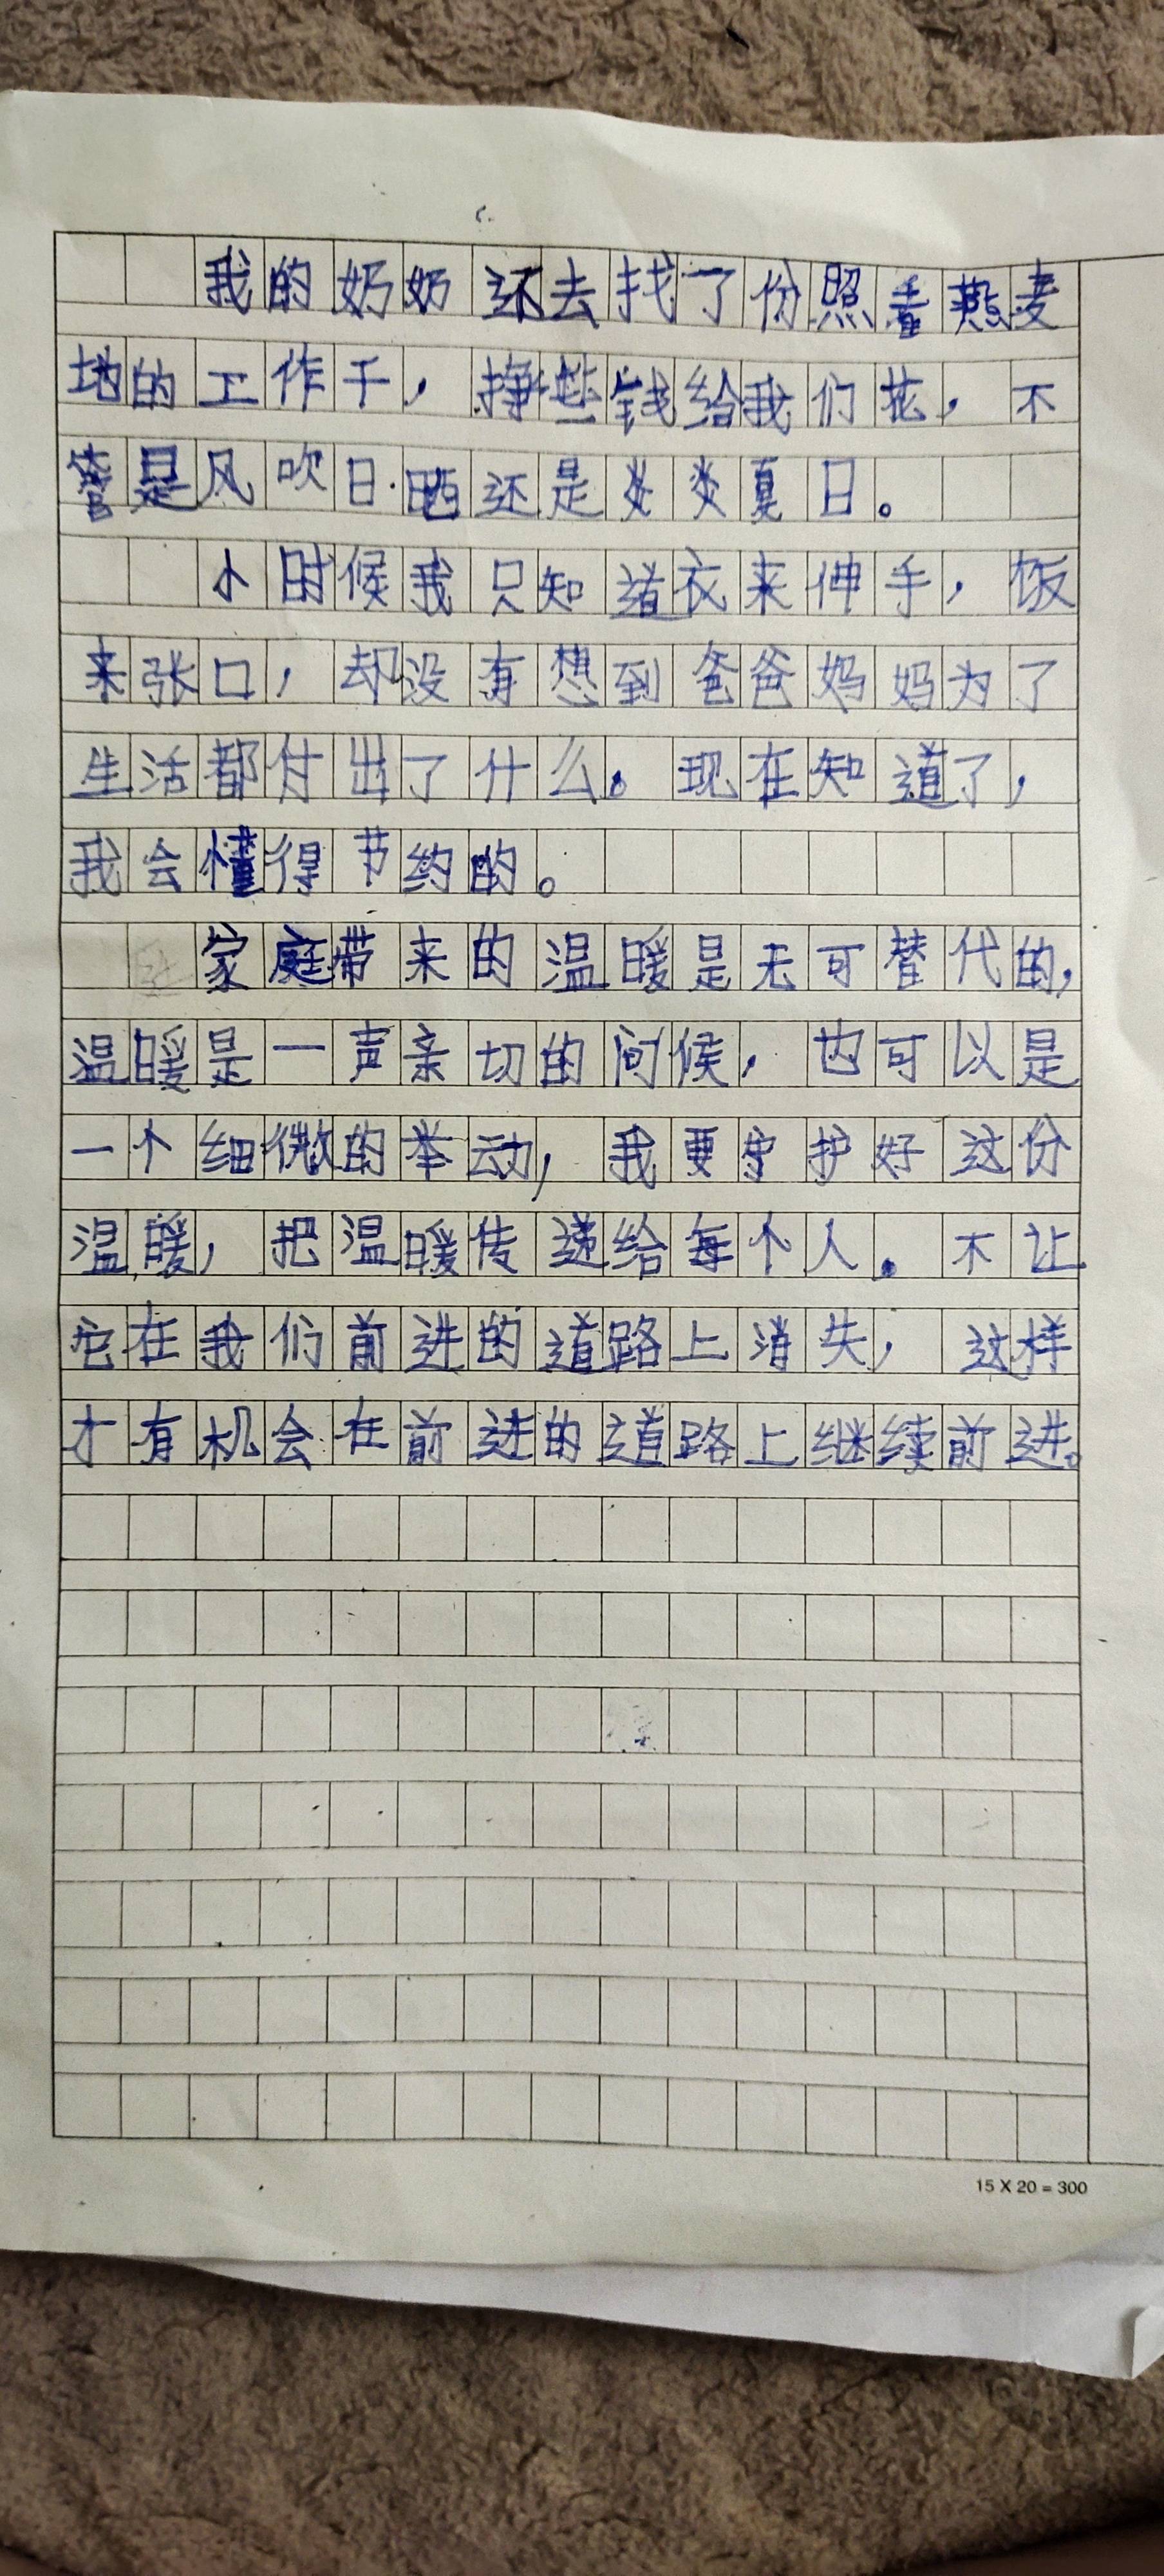 我的奶奶还去找了份照看燕麦
地的工作干，挣些钱给我们花，不
管是风吹日晒还是炎炎夏日。
小时候我只知道衣来伸手，饭
来张口，却没有想到爸爸妈妈为了
生活都付出了什么。现在知道了，
我会懂得节约的。
家庭带来的温暖是无可替代的，
温暖是一声亲切的问候，也可以是
一个细微的举动，我要守护好这份
温暖，把温暖传递给每个人。不让
它在我们前进的道路上消失，这样
才有机会在前进的道路上继续前进。
15 X 20 = 300